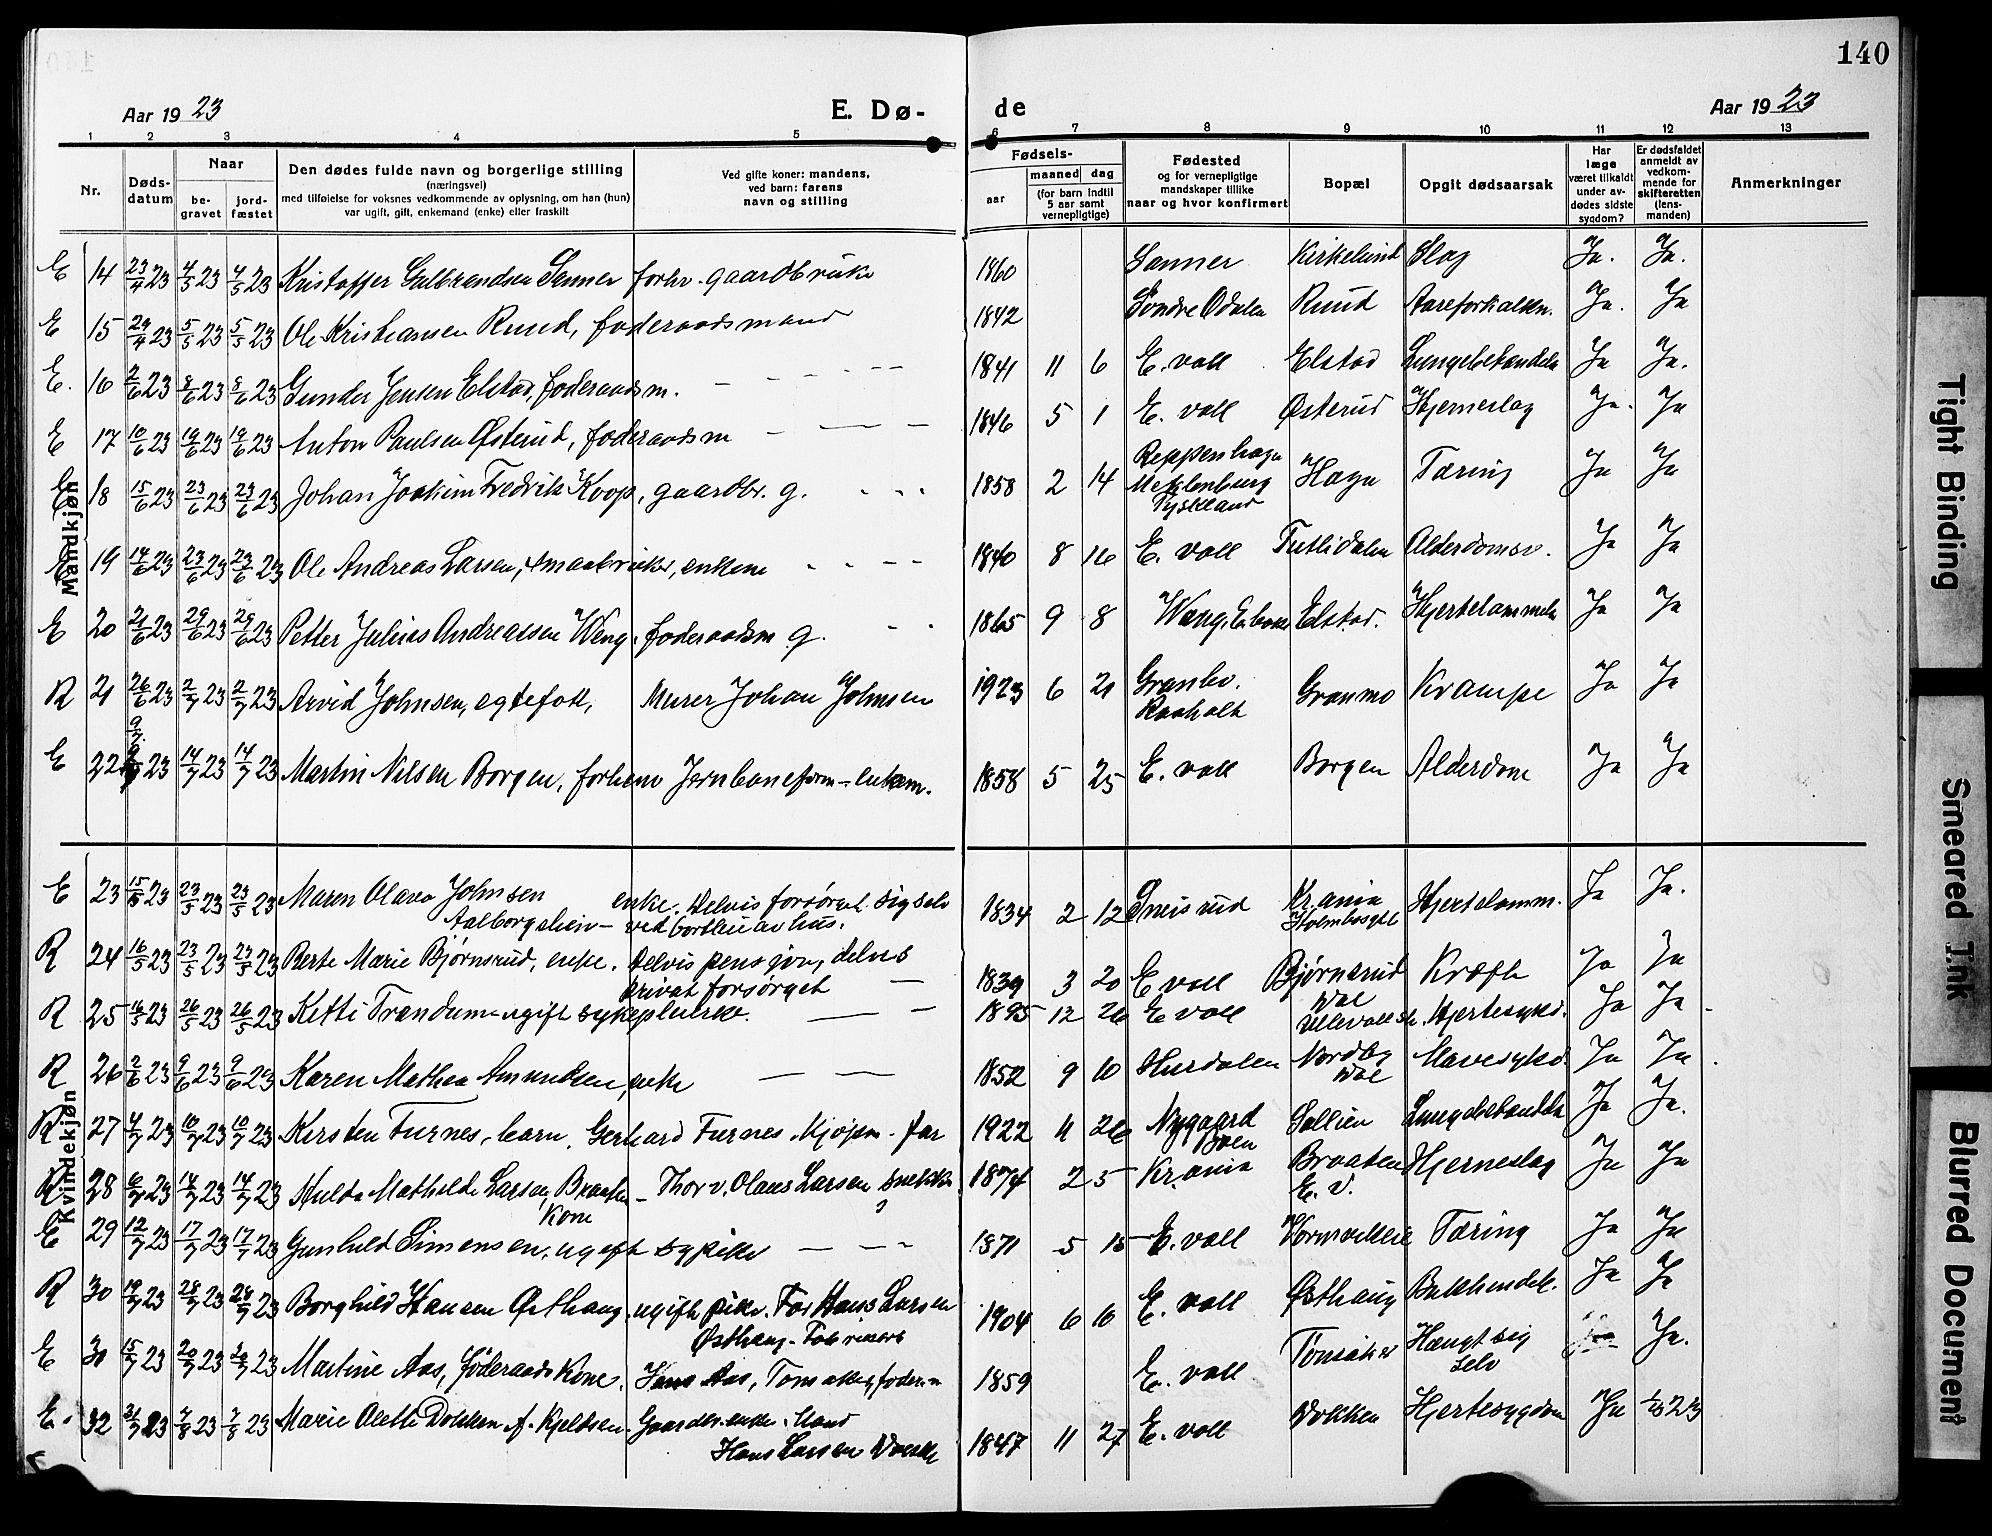 140
Aar 1923 E. Dø- de Aar 1923
1 2 3 4 5 6 7 8 9 10 11 12 13
Nr. Døds-datum Naar be-gravet jord-fæstet
Den dødes fulde navn og borgerlige stilling
(næringsvei)
med tilføielse for voksnes vedkommende av oplysning, om han (hun)
var ugift, gift, enkemand (enke) eller fraskilt
Ved gifte koner: mandens,
ved barn: farens
navn og stilling
Fødsels-
aar maaned dag
(for barn indtil
5 aar samt
vernepligtige)
Fødested
og for vernepligtige
mandskaper tillike
naar og hvor konfirmert
Bopæl
Opgit dødsaarsak
Har
læge
været tilkaldt
under av-
dødes sidste
sygdom?
Er dødsfaldet
anmeldt av
vedkom-
mende for
skifteretten
(lens-
manden)
Anmerkninger
Mandkjøn
E 14 23/4 23 4/5 23 4/5 23 Kristoffer Gulbrandsen Sanner forhv. gaardbruker 1860 Sanner Kirkelund Slag Ja. Ja.
E 15 29/4 23 5/5 23 5/5 23 Ole Kristiansen Ruud,føderaadsmand 1842 Søndre Odalen Ruud Aareforkalkn. Ja. Ja
E. 16 2/6 23 8/6 23 8/6 23 Gunder Jensen Elstad, føderaadsm. 1841 11 6 E. voll Elstad Lungebetændelse Ja Ja.
E 17 10/6 23 19/6 23 19/6 23 Anton Paulsen Østerud, føderaadsm 1846 5 1 E. voll Østerud Hjerneslag Ja. Ja
E 18 15/6 23 23/6 23 23/6 23 Johan Joakim Fredrik Koop, gaardbr. g. 1858 2 14 Reppenhagen Meklenburg Tyskland Haga Tæring Ja Ja
E 19 14/6 23 23/6 23 23/6 23 Ole Andreas Larsen, smaabruker, enkem 1840 8 16 E. voll Tutlidalen Alderdomsv. Ja Ja
E 20 21/6 23 29/6 23 29/6 23 Petter Julius Andreassen Weng. føderaadsm g. 1865 9 8 Wang, Elstad. Hjertelammelse Ja Ja
R 21 26/6 23 2/7 23 2/7 23 Arvid Johnsen, egtefødt, Murer Johan Johnsen 1923 6 21 Granbo. Raaholt Granmo Krampe Ja Ja
E 22 9/7 23 14/7 23 14/7 23 Martin Nilsen Borgen, forhenv Jernbaneform - enkem. 1858 5 25 E. voll Borgen Alderdom Ja Ja
Kvindekjøn
E 23 15/5 23 23/5 23 23/5 23 Maren Olava Johnsen enke. Delvis forsørget sig selv 1834 2 12 Sneisrud Kr.ania Hjertelamm. Ja Ja.
Aalborgslien - ved bortleie av hus.
R 24 16/5 23 23/5 23 23/5 23 Berte Marie Bjørnsrud, enke. Delvis pensjon, delvis 1839 3 20 E voll Bjørnsrud Kræft Ja Ja
privat forsørget
R 25 16/5 23 26/5 23 26/5 23 Kitti Trandum ugift sykepleierske. 1895 12 26 E voll Ullevaal Hjertesykd. Ja Ja
R 26 2/6 23 9/6 23 9/6 23 Karen Mathea Amundsen, enke 1852 9 10 Hurdalen Nordby Mavesykd. Ja Ja
R 27 4/7 23 10/7 23 10/7 23 Kirsten Furnes, barn. Gerhard Furnes Kjøpm. far 1922 11 26 Nygaard Sollien Lungebetændelse Ja Ja.
R 28 6/7 23 14/7 23 14/7 23 Hulda Mathilde Larsen, Braaten - Thorv. Olaus Larsen snekker 1874 2 5 Kr.ania Braaten E. V. Hjerneslag Ja Ja
Kone
E 29 12/7 23 17/7 23 17/7 23 Gunhild Simensen, ugift sypike 1871 5 15 E. voll Tæring Ja Ja
R 30 19/7 23 28/7 23 28/7 23 Borghild Hansen Østhaug, ugift pike. Far Hans Larsen 1904 6 16 E. voll Østhaug Bukhindeb. Ja Ja
Østhaug
E 31 15/7 23 20/7 23 20/7 23 Martine Aas, føderaads Kone. Hans Aas, 1859 E. voll Tønsaker Hængt sig selv Ja.
E. 32 31/7 23 7/8 23 7/8 23 Marie Olette Dokken f. Kjeldsen. Gaardbr.enke. Mand 1847 11 27 E. voll Dokken Hjertesygdom Ja 23
Hans Larsen Dokken
Tight Binding
Smeared Ink
Blurred Document